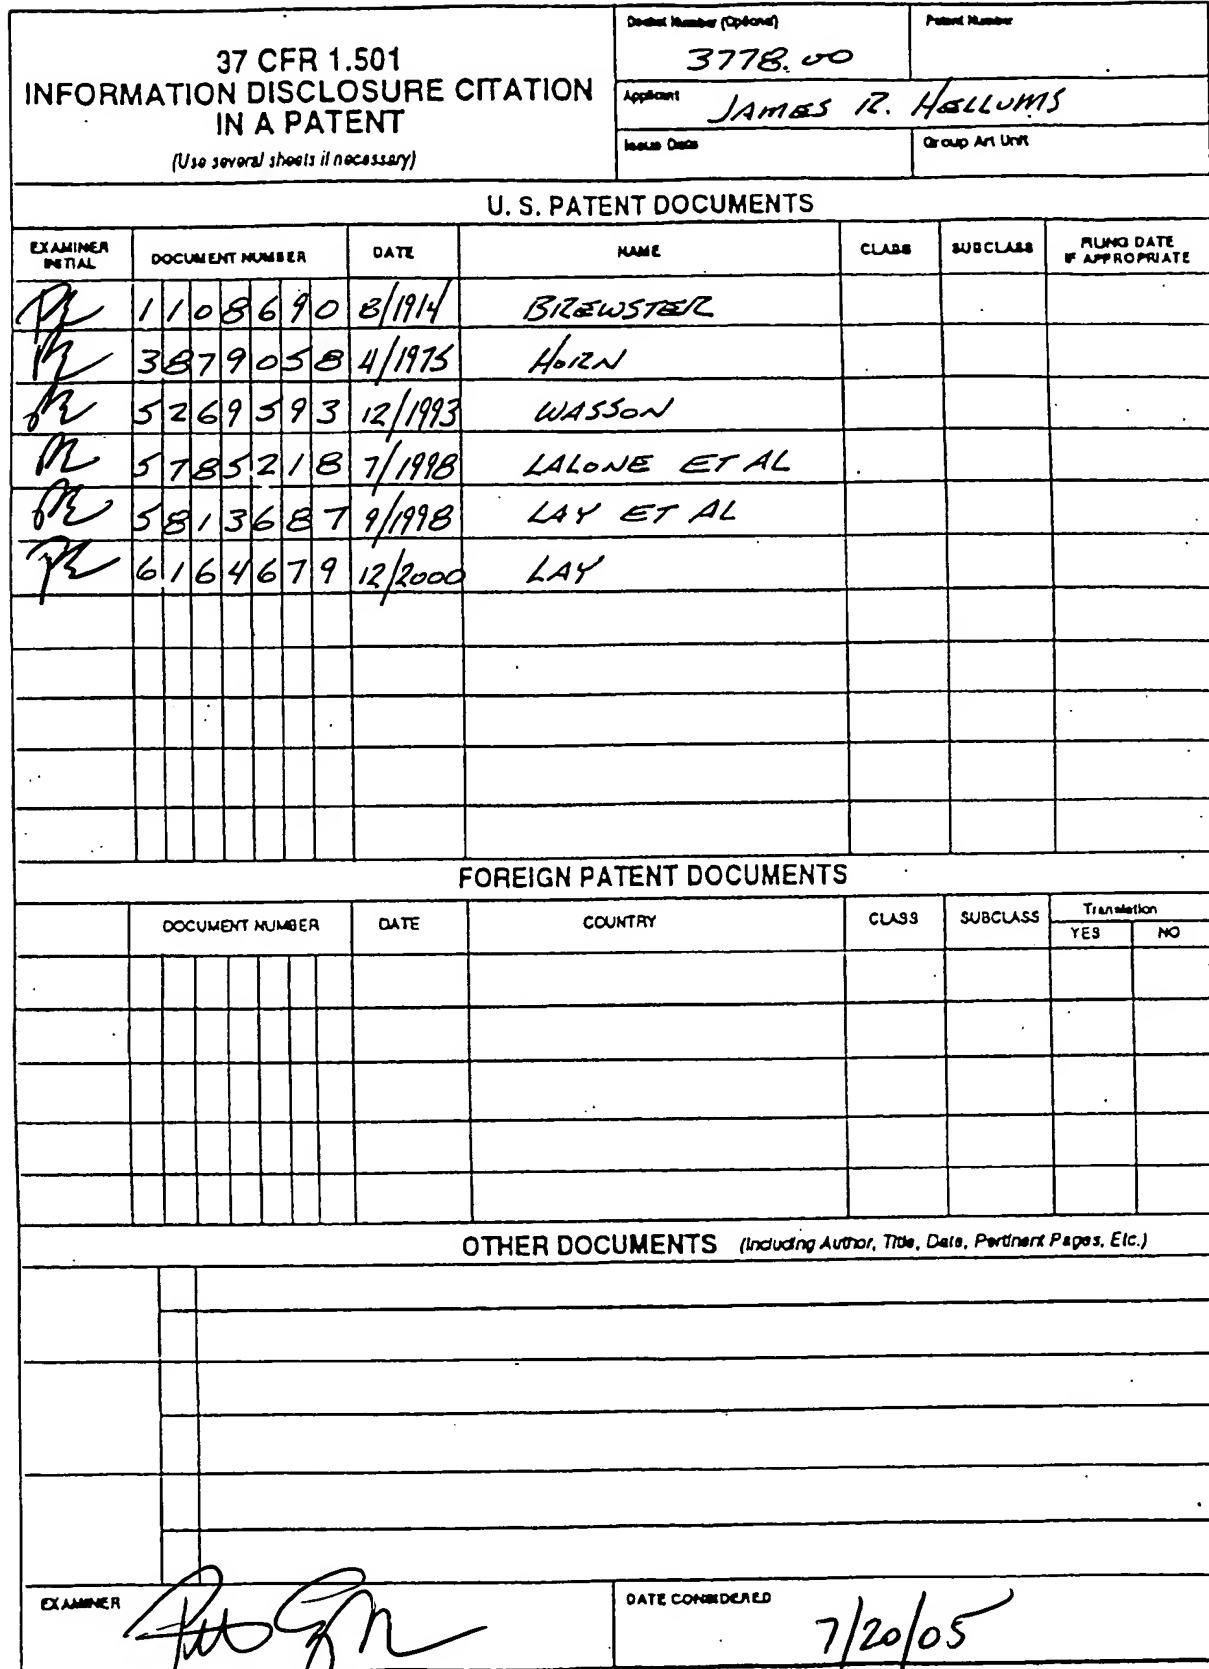 37 CFR 1.501
INFORMATION DISCLOSURE CITATION
IN A PATENT
(Use several sheets if necessary)
Docket Number (Optional)
3778.00
Patent Number
Applicant
JAMES R. HELLUMS
Issue Date
Group Art Unit
U. S. PATENT DOCUMENTS
EXAMINER INITIAL DOCUMENT NUMBER DATE NAME CLASS SUBCLASS FILING DATE IF APPROPRIATE
1108690 8/1914 BREWSTER
3879058 4/1975 HORN
5269593 12/1993 WASSON
5785218 7/1998 LALONE ET AL
5813687 9/1998 LAY ET AL
6164679 12/2000 LAY
FOREIGN PATENT DOCUMENTS
DOCUMENT NUMBER DATE COUNTRY CLASS SUBCLASS Translation
YES NO
OTHER DOCUMENTS (Including Author, Title, Date, Pertinent Pages, Etc.)
EXAMINER
DATE CONSIDERED
7/20/05